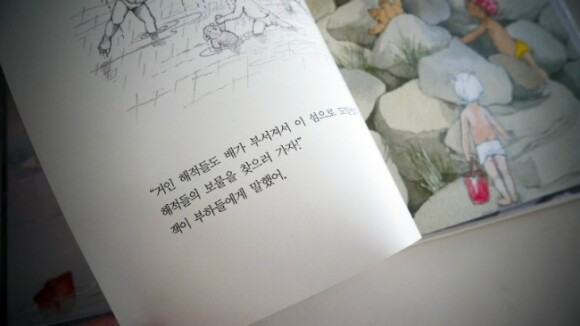 “거인 해적들도 배가 부서져서 이 섬으로
해적들의 보물을 찾으러 가자!”
잭이 부하들에게 말했어.